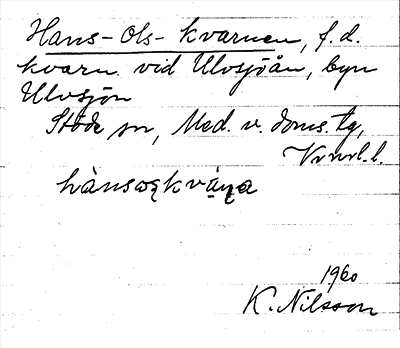 Hans-Ols-kvarnen, f.d.
kvarn vid Ulvsjöån, byn
Ulvsjön
Stöde sn, Med. v. doms. tg,
Vrnrl. l.
hànsoʂkvàɳa
1960
K. Nilsson